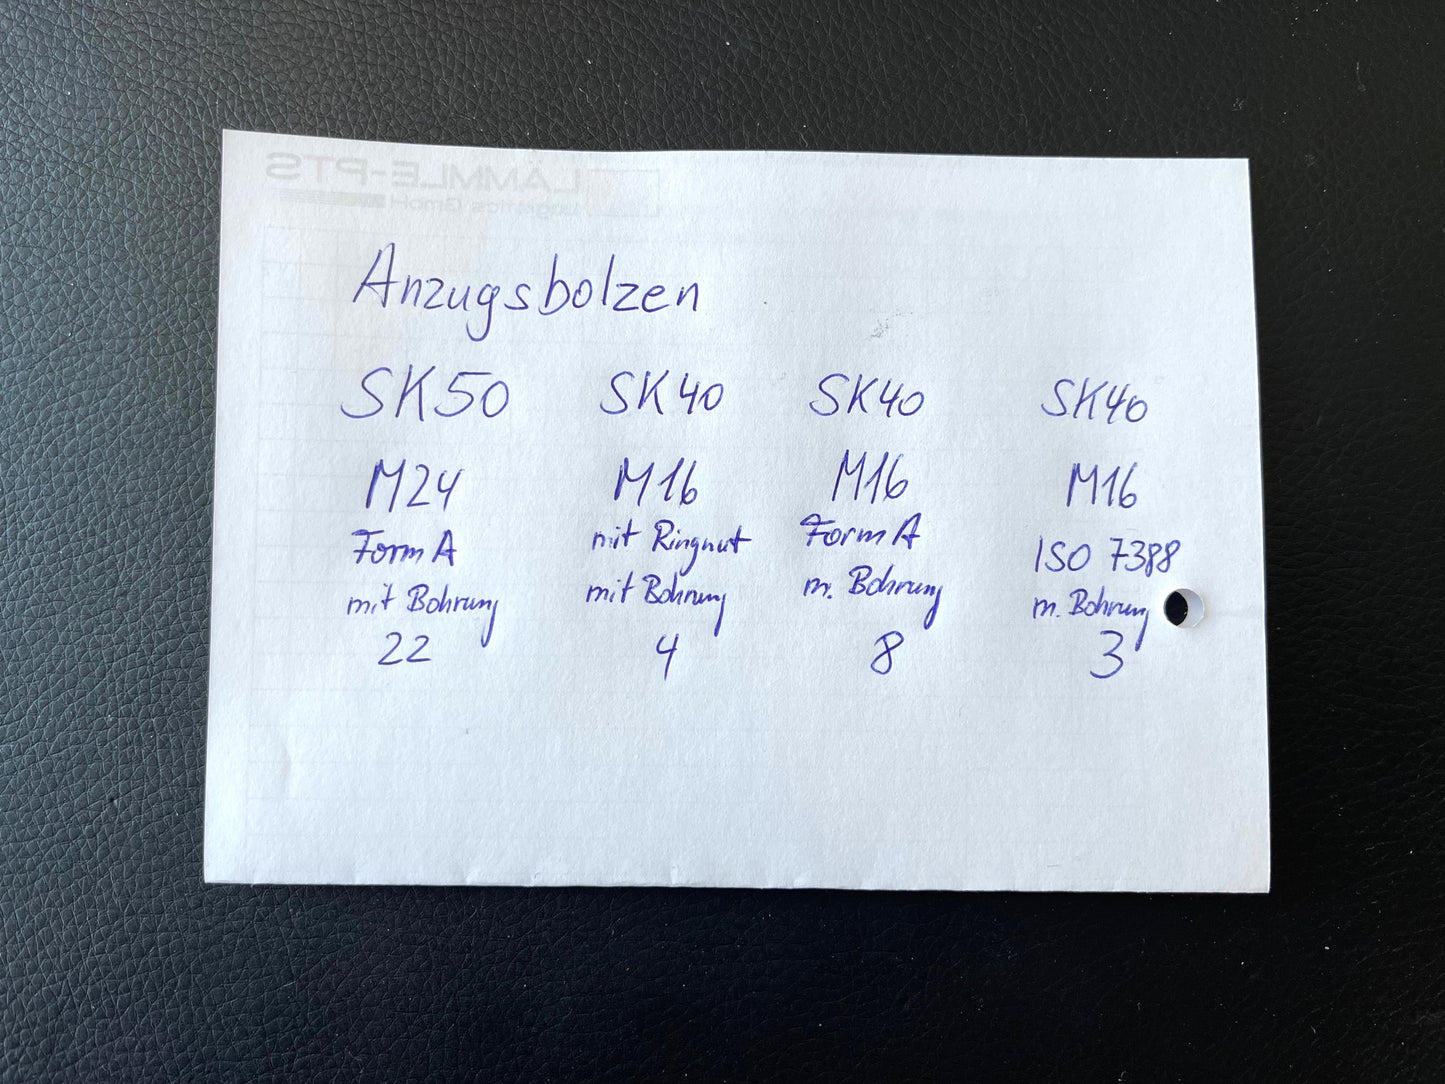 LÄMMLE-PTS
Logistics GmbH
Anzugsbolzen
SK50 SK40 SK40 SK40
M24 M16 M16 M16
Form A mit Ringnut Form A ISO 7388
mit Bohrung mit Bohrung m. Bohrung m. Bohrung
22 4 8 3